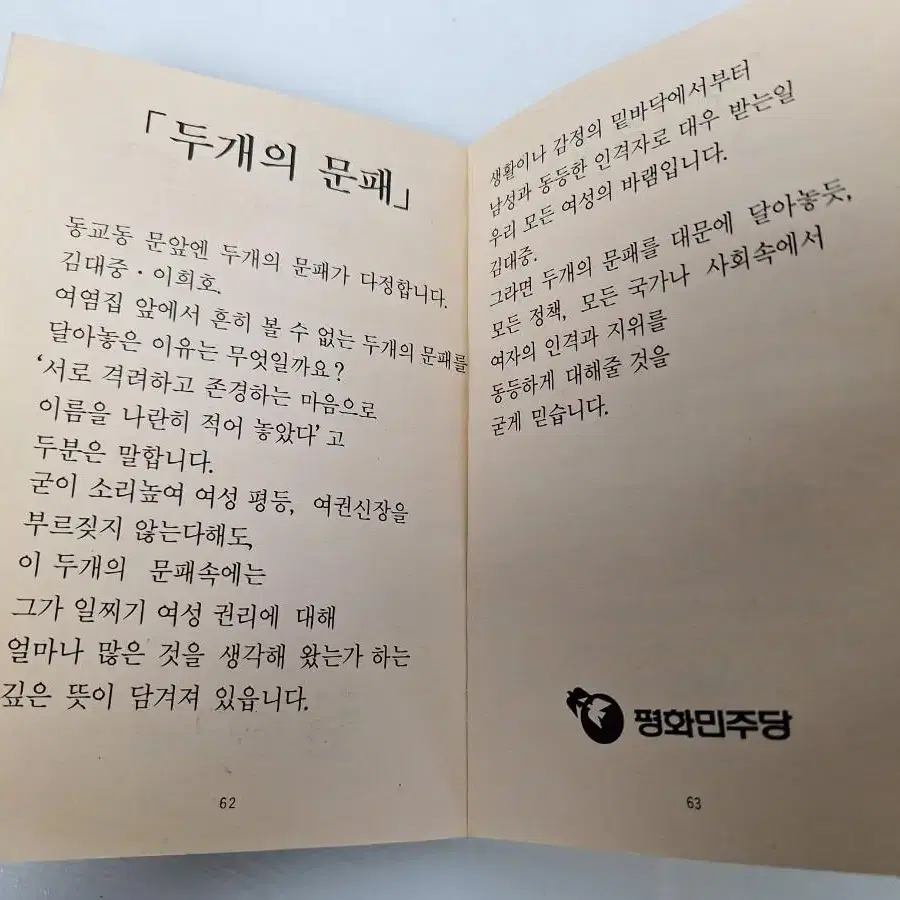 「두개의 문패」
동교동 문앞엔 두개의 문패가 다정합니다.
김대중·이희호.
여염집 앞에서 흔히 볼 수 없는 두개의 문패를
달아놓은 이유는 무엇일까요?
‘서로 격려하고 존경하는 마음으로
이름을 나란히 적어 놓았다’고
두분은 말합니다.
굳이 소리높여 여성 평등, 여권신장을
부르짖지 않는다해도,
이 두개의 문패속에는
그가 일찌기 여성 권리에 대해
얼마나 많은 것을 생각해 왔는가 하는
깊은 뜻이 담겨져 있읍니다.
62
생활이나 감정의 밑바닥에서부터
남성과 동등한 인격자로 대우 받는일
우리 모든 여성의 바램입니다.
김대중.
그라면 두개의 문패를 대문에 달아놓듯,
모든 정책, 모든 국가나 사회속에서
여자의 인격과 지위를
동등하게 대해줄 것을
굳게 믿습니다.
평화민주당
63